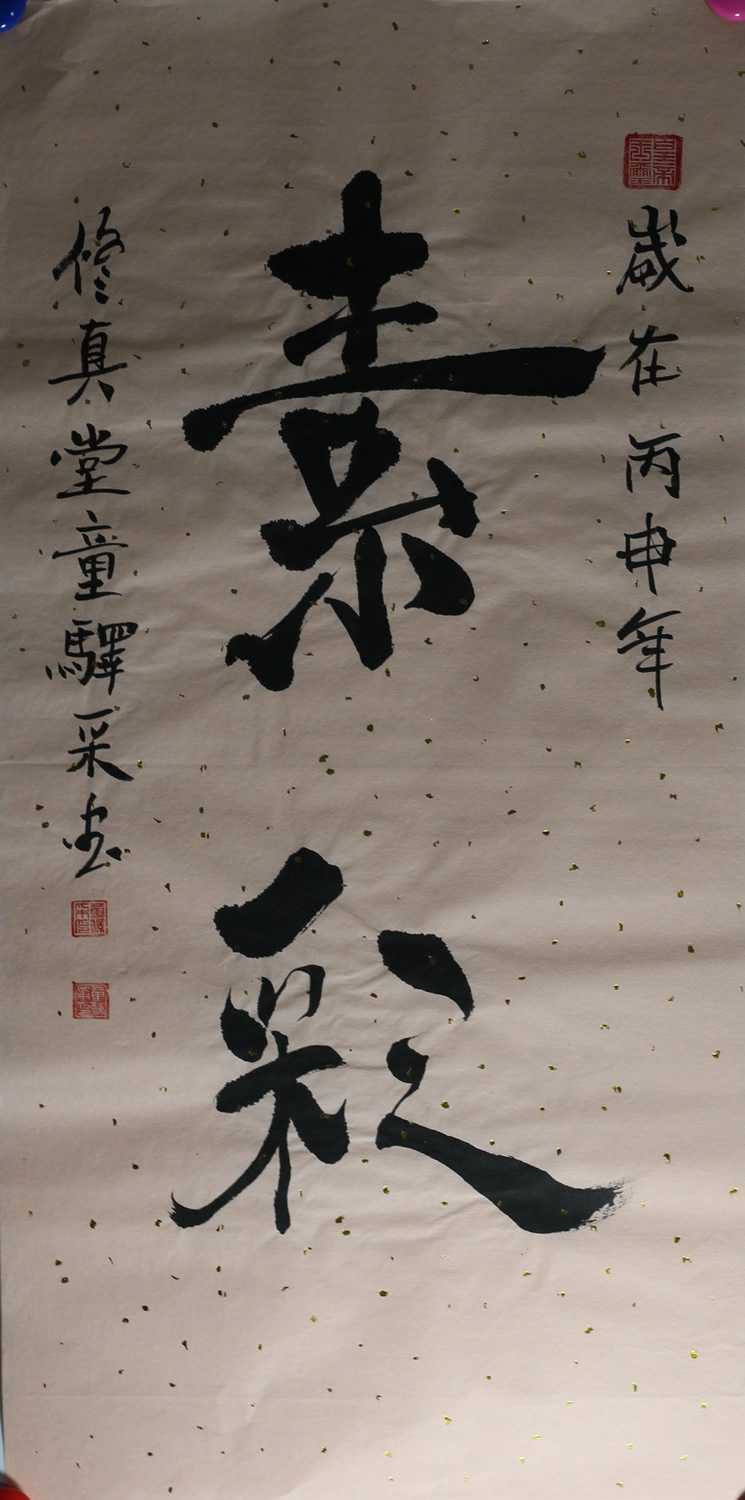 歲在丙申年
素彩
修真堂童驛采书